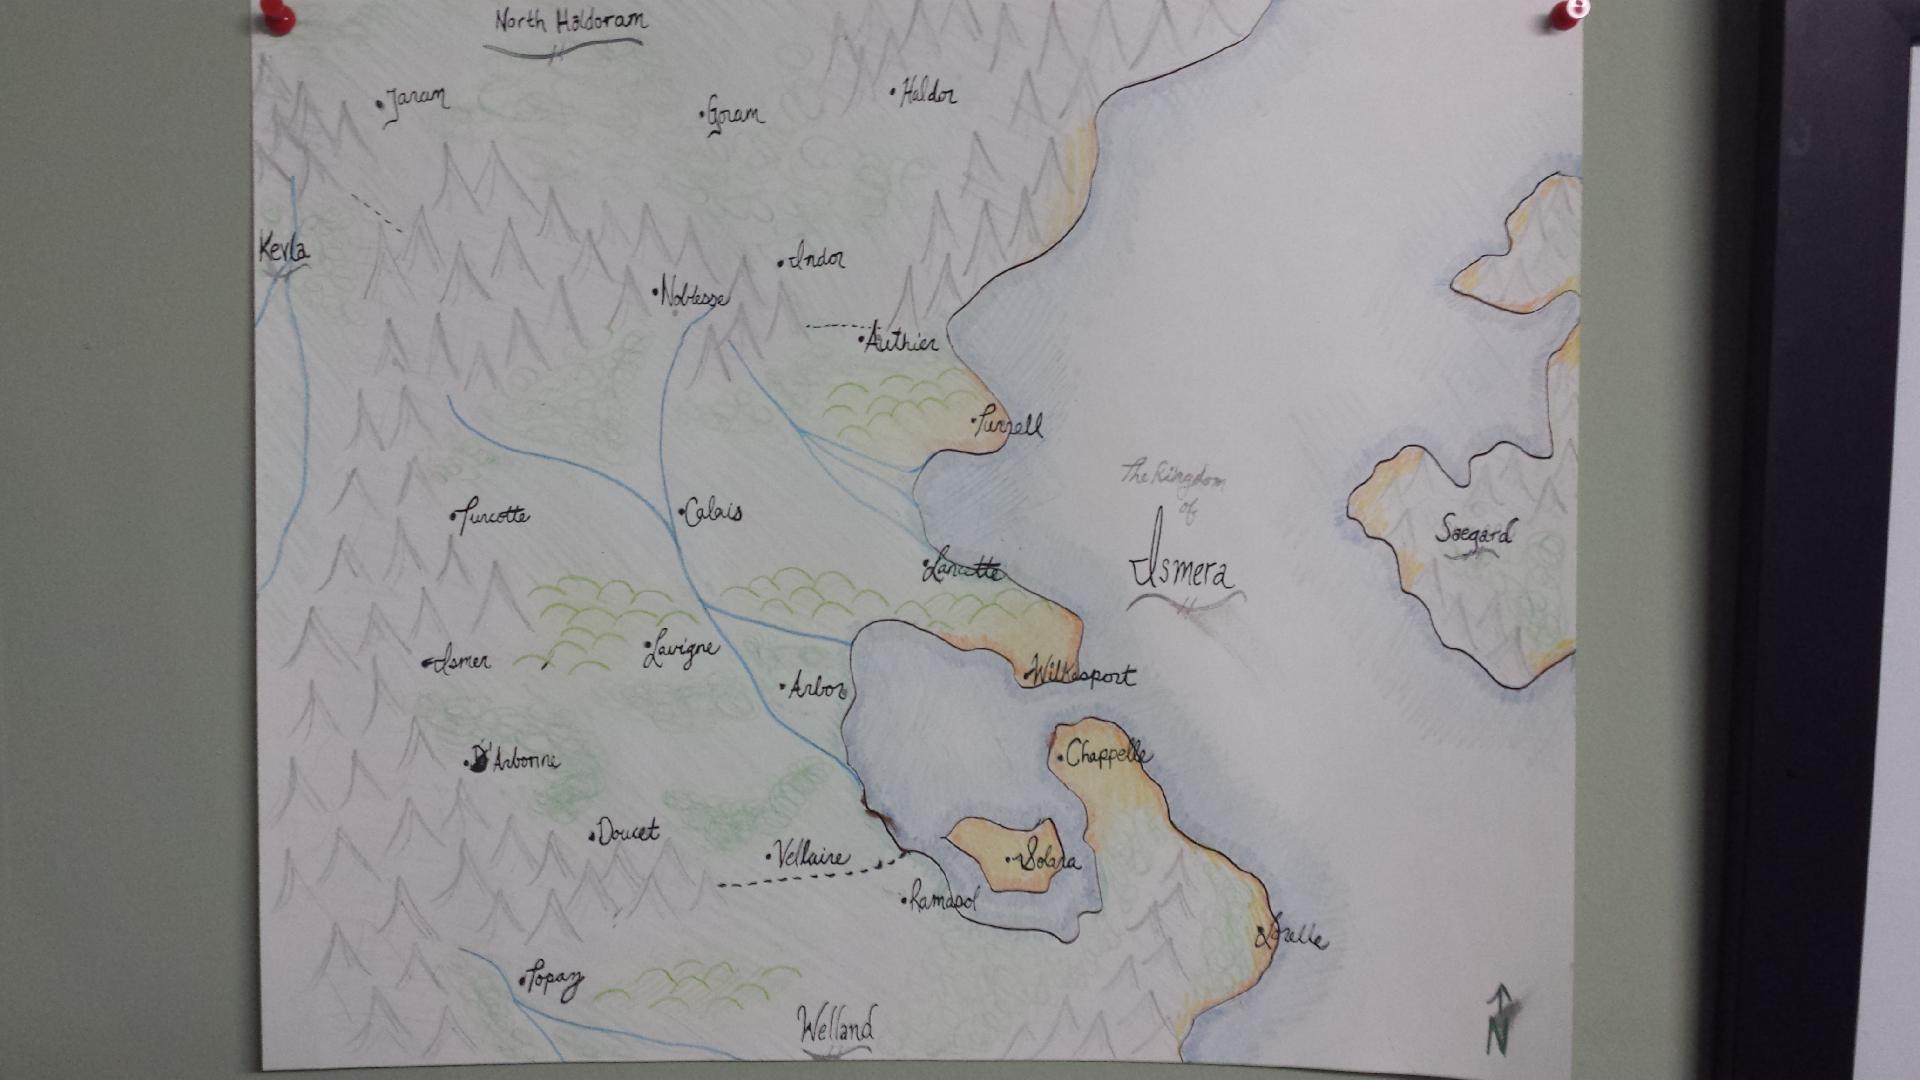 North Haldoram
Jaram
Goram
Haldor
Kevla
Indor
Noblesse
Authier
Purzell
The Kingdom
of
Ismera
Turcotte
Calais
Saegard
Lancette
Ismer
Lavigne
Arbor
Wilkesport
D'Arbonne
Chappelle
Doucet
Vellaire
Solara
Ramasol
Lorelle
Topaz
Welland
N